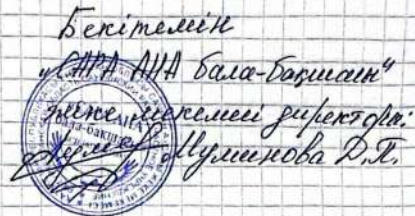 Бекітемін
"САРА АНА бала-бақшасы"
жеке мекемесі директоры:
Муминова Д.П.